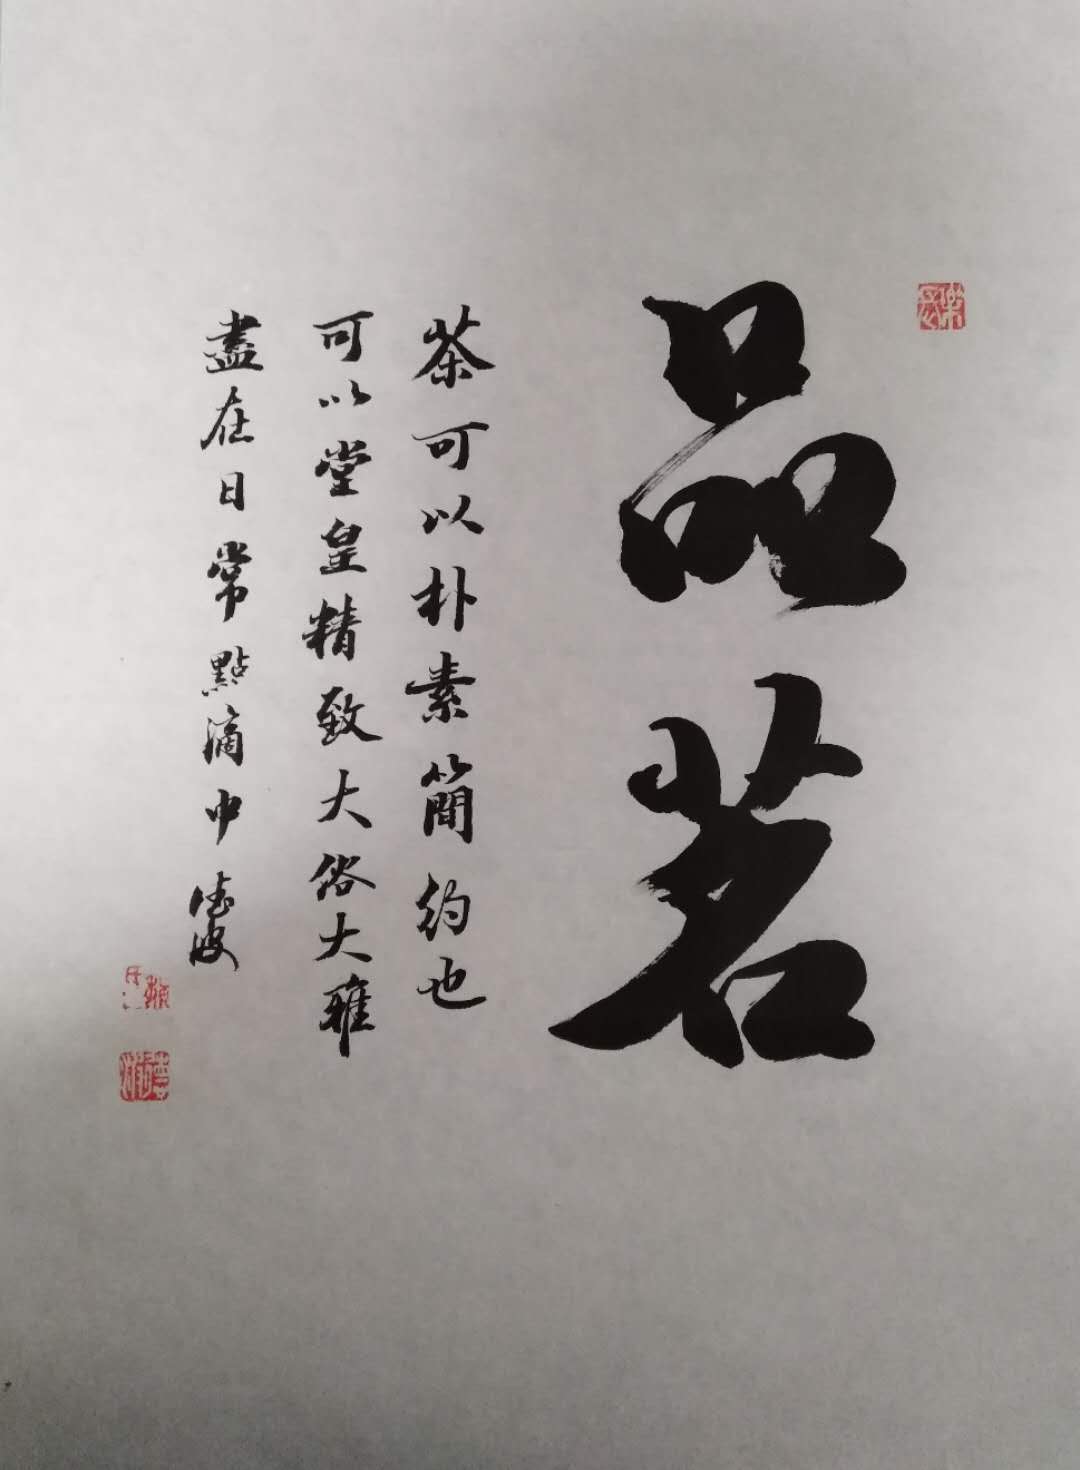 品茗
茶可以朴素簡約也
可以堂皇精致大俗大雅
盡在日常點滴中